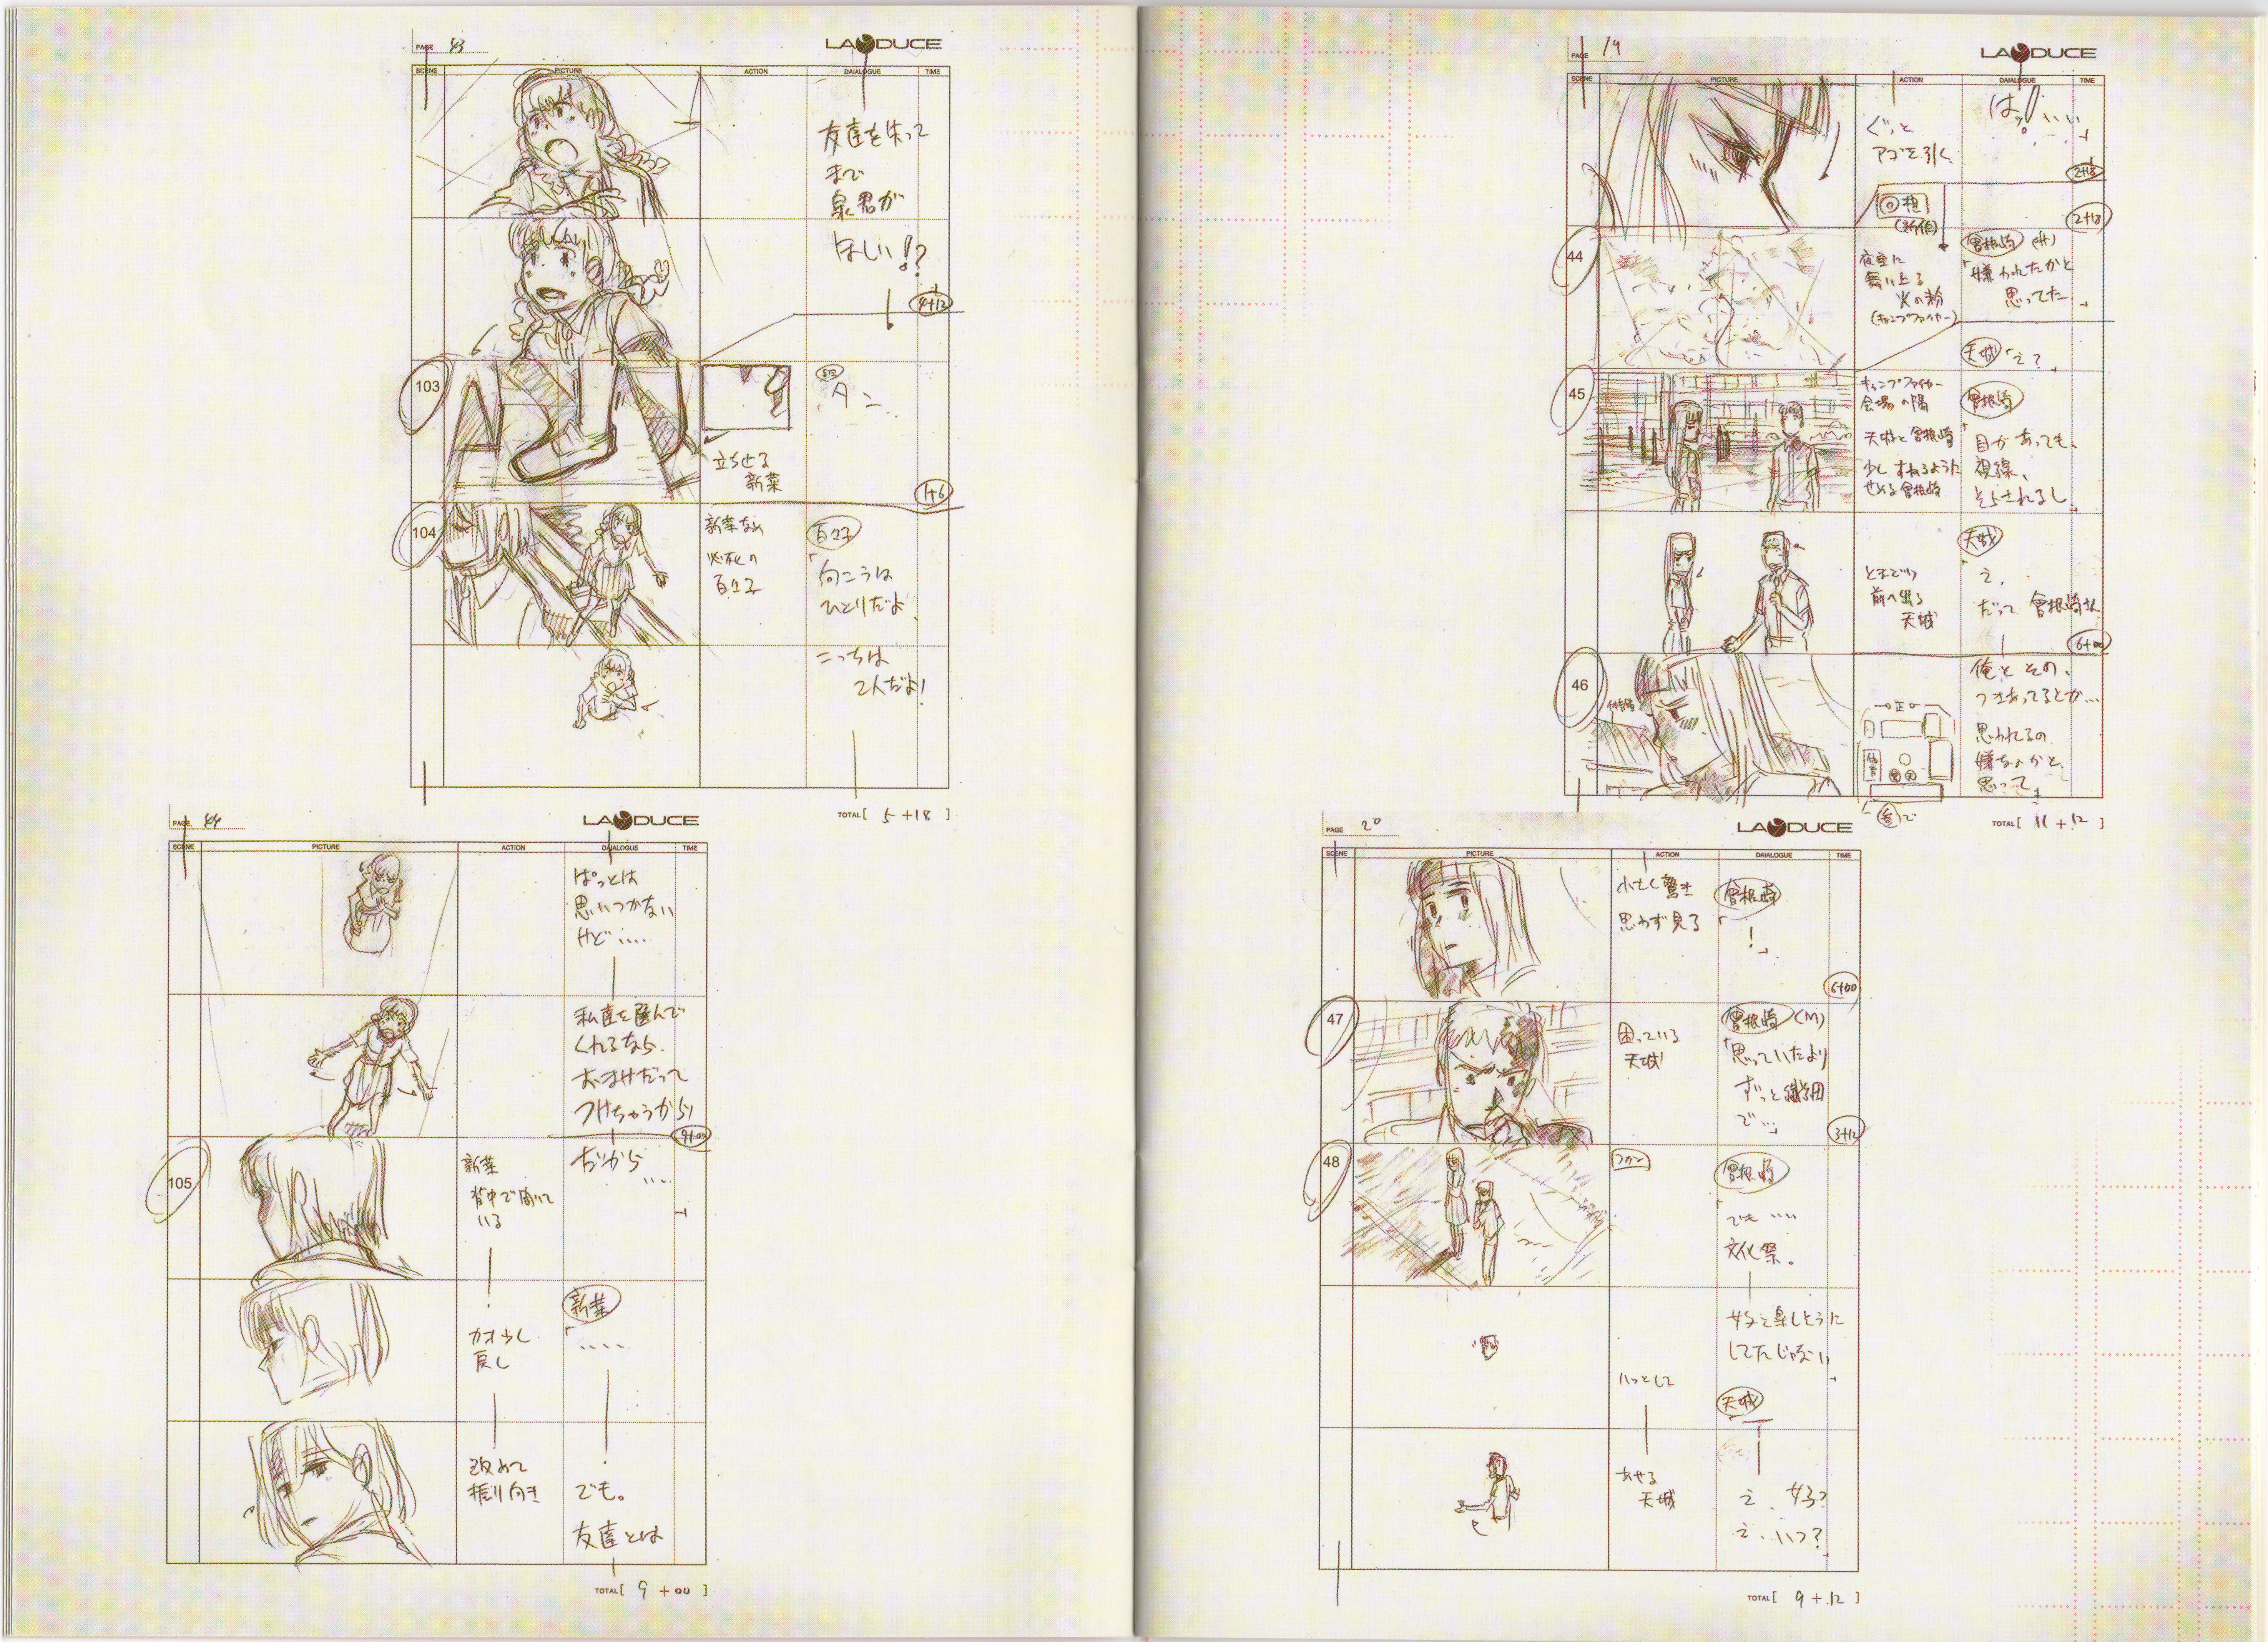 PAGE 43
LADUCE
SCENE PICTURE ACTION DAIALOGUE TIME
友達を失って
まで
泉君が
ほしい!?
4+12
103
立ち止る
新菜
タン…
1+6
104
新菜なめ
必死の
百々子
百々子
「向こうは
ひとりだよ、
こっちは
2人だよ!
TOTAL [ 5+18 ]
PAGE 44
LADUCE
SCENE PICTURE ACTION DAIALOGUE TIME
ぱっとは
思いつかない
けど‥‥
私達を選んで
くれるなら、
おまけだって
つけちゃうから!
9+00
105
新菜
背中で聞いて
いる
だから
‥‥
カオ少し
戻し
新菜
「‥‥
改めて
振り向き
でも。
友達とは
TOTAL [ 9+00 ]
PAGE 19
LADUCE
SCENE PICTURE ACTION DAIALOGUE TIME
ぐっと
アゴを引く
2+18
回想
(新作)
2+18
44
夜空に
舞い上る
火の粉
(キャンプファイヤー)
曽根崎
「嫌われたかと
思ってた」
天城「え?」
45
キャンプファイヤー
会場の隅
天城と曽根崎
少しすねるように
せめる曽根崎
曽根崎
「目があっても、
視線、
そらされるし」
とまどい
前へ出る
天城
天城
「え、
だって 曽根崎さん
6+00
46
俺と その、
つきあってるとか…
思われるの
嫌なのかと
思って」
TOTAL [ 11+12 ]
PAGE 20
LADUCE
SCENE PICTURE ACTION DAIALOGUE TIME
小さく驚き
思わず見る
曽根崎
「!」
6+00
47
困っている
天城
曽根崎 (M)
「思っていたより
ずっと繊細
で…」
3+12
48
曽根崎
「でも‥‥
文化祭。
女子と楽しそうに
してたじゃない」
ハッとして
天城
あせる
天城
え、女子?
え、いつ?」
TOTAL [ 9+12 ]